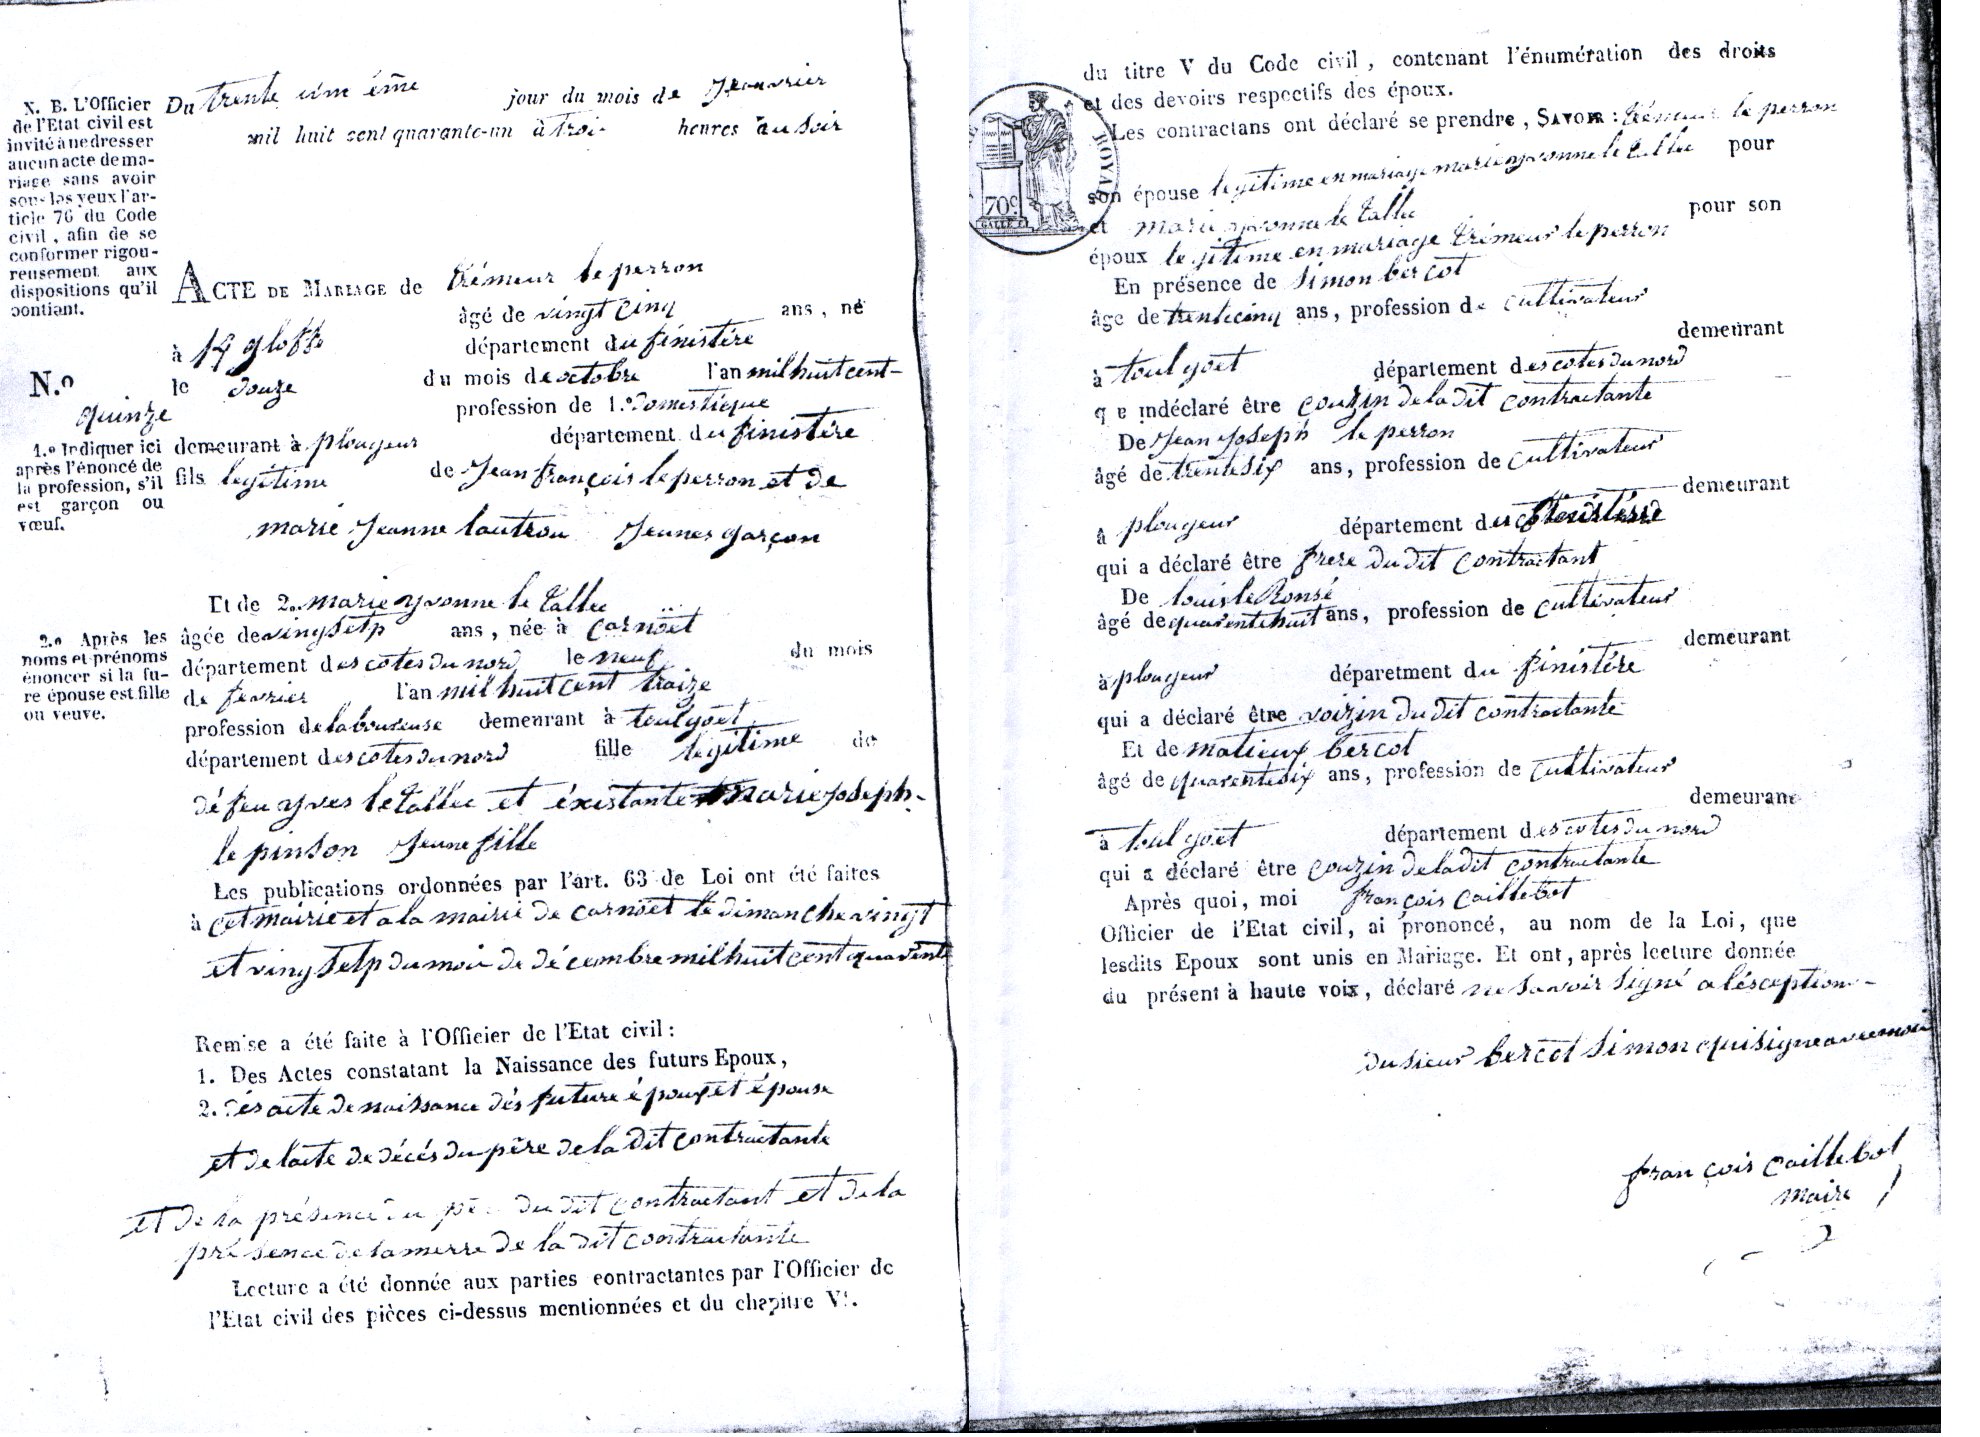 N. B. L'Officier
de l'Etat civil est
invité à ne dresser
aucun acte de ma-
riage sans avoir
sous les yeux l'ar-
ticle 76 du Code
civil, afin de se
conformer rigou-
reusement aux
dispositions qu'il
contient.
N.º
quinze
1.º Indiquer ici
après l'énoncé de
la profession, s'il
est garçon ou
vœuf.
2.º Après les
noms et prénoms
énoncer si la fu-
re épouse est fille
ou veuve.
Du trente unième jour du mois de Jeanvrier
mil huit cent quarante-un à troi heures au soir
ACTE DE MARIAGE de trémeur le perron
âgé de vingt cinq ans, né
à département du finistére
le douze du mois de octobre l'an mil huit cent-
profession de 1.º domestique
demeurant à plouyeur département du finistére
fils legitime de Jean françois le perron et de
marie Jeanne lautrou Jeunes garçon
Et de 2.º marie yvonne le tallec
âgée de vingt setp ans, née à carnöet
département des cotes du nord le neuf du mois
de fevrier l'an mil huit cent traize
profession de laboureuse demeurant à toulgoët
département des cotes du nord fille legitime de
dé feu yves le tallec et éxistante marie joseph-
le pinson Jeune fille
Les publications ordonnées par l'art. 63 de Loi ont été faites
à cet mairie et a la mairie de carnoet le dimanche vingt
et vingt setp du moi de décembre mil huit cent quarente
Remise a été faite à l'Officier de l'Etat civil :
1. Des Actes constatant la Naissance des futurs Epoux,
2. dés acte de naissance dés future époux et épouse
et de l'acte de décés du père de la dit contractante
et de la présence du père du dit contractant et de la
présence de la merre de la dit contractante
Lecture a été donnée aux parties contractantes par l'Officier de
l'Etat civil des pièces ci-dessus mentionnées et du chapitre VI.
ROYAL
70c
du titre V du Code civil, contenant l'énumération des droits
et des devoirs respectifs des époux.
Les contractans ont déclaré se prendre, SAVOIR : trémeur le perron
son épouse legitime en mariage marie yvonne le tallec pour
et marie yvonne le tallec pour son
époux legitime en mariage trémeur le perron
En présence de Simon bercot
âge de trente cinq ans, profession de cultivateur
demeurant
à toulgoët département des cotes du nord
q e indéclaré être couzin de la dit contractante
De Jean Joseph le perron
âgé de trente six ans, profession de cultivateur
demeurant
à plouyeur département du finistére
qui a déclaré être frere du dit contractant
De louis le Ronsé
âgé de quarente huit ans, profession de cultivateur
demeurant
à plouyeur déparetment du finistére
qui a déclaré être voizin du dit contractante
Et de matieux bercot
âgé de quarente six ans, profession de cultivateur
demeurant
à toulgoet département des cotes du nord
qui a déclaré être couzin de la dit contractante
Après quoi, moi françois caillebot
Officier de l'Etat civil, ai prononcé, au nom de la Loi, que
lesdits Epoux sont unis en Mariage. Et ont, après lecture donnée
du présent à haute voix, déclaré ne savoir signé a l'ésception-
du sieur bercot Simon qui signe avec moi
françois caillebot
maire